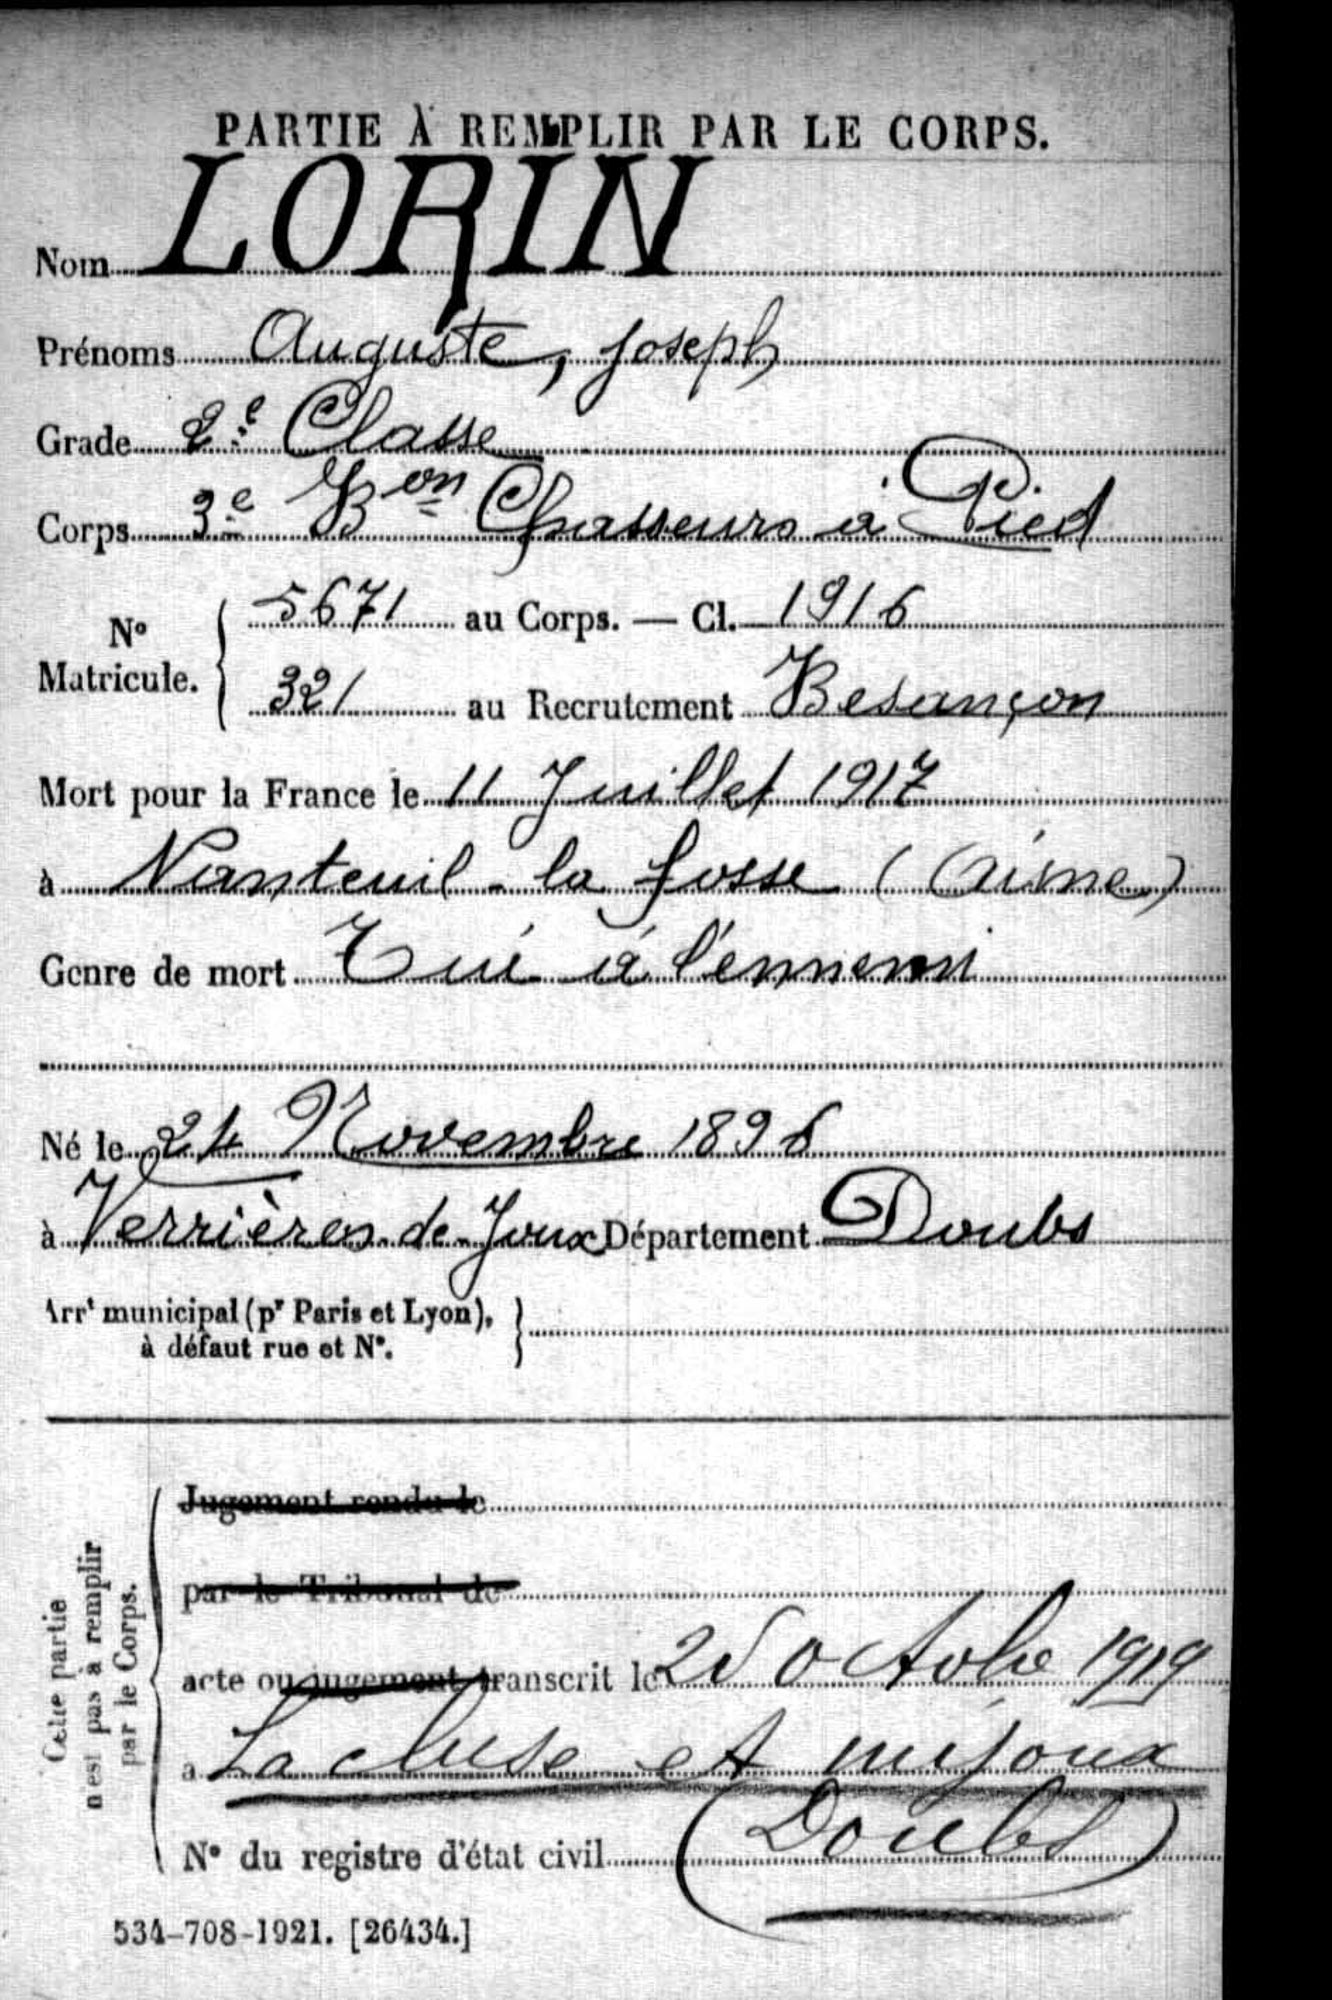 PARTIE À REMPLIR PAR LE CORPS.
Nom LORIN
Prénoms Auguste, Joseph
Grade 2e Classe
Corps 3e Bon Chasseurs à Pied
No Matricule. { 5671 au Corps. — Cl. 1916
321 au Recrutement Besançon
Mort pour la France le 11 Juillet 1917
à Nanteuil-la fosse (Aisne)
Genre de mort Tué à l'ennemi
Né le 24 Novembre 1896
à Verrières-de-Joux Département Doubs
Arrt municipal (pr Paris et Lyon), à défaut rue et No. }
Cette partie n'est pas à remplir par le Corps.
Jugement rendu le
par le Tribunal de
acte ou jugement transcrit le 25 octobre 1919
a La cluse et mijoux
(Doubs)
No du registre d'état civil
534-708-1921. [26434.]